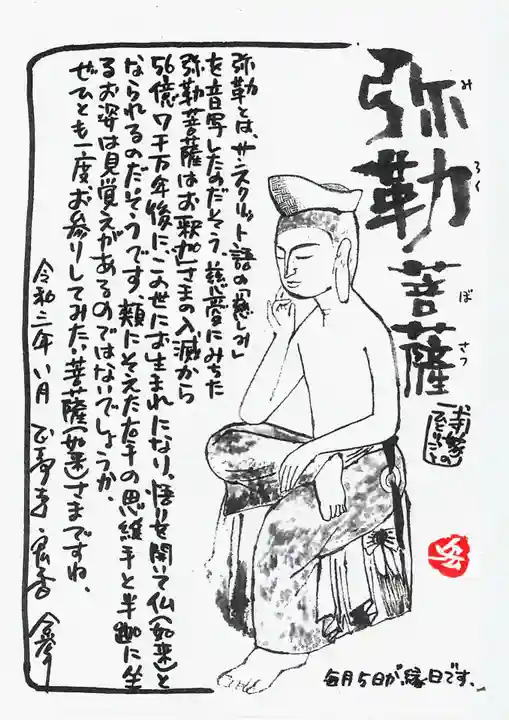 弥勒菩薩
みろくぼさつ
弥勒とは、サンスクリット語の「慈しみ」
を音写したのだそう。慈愛にみちた
弥勒菩薩はお釈迦さまの入滅から
56億7千万年後に、この世にお生まれになり、悟りを開いて仏(如来)と
なられるのだそうです。頬にそえた右手の思維手と半跏に坐
るお姿は見覚えがあるのではないでしょうか。
ぜひとも一度、お参りしてみたい菩薩(如来)さまですね。
令和三年八月
毎月5日が縁日です。